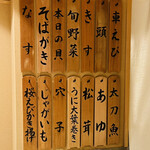 車えび
頭
きす
旬野菜
本日の貝
そばがき
なす
太刀魚
あゆ
松茸
うに大葉巻き
穴子
じゃがいも
桜えびかき揚